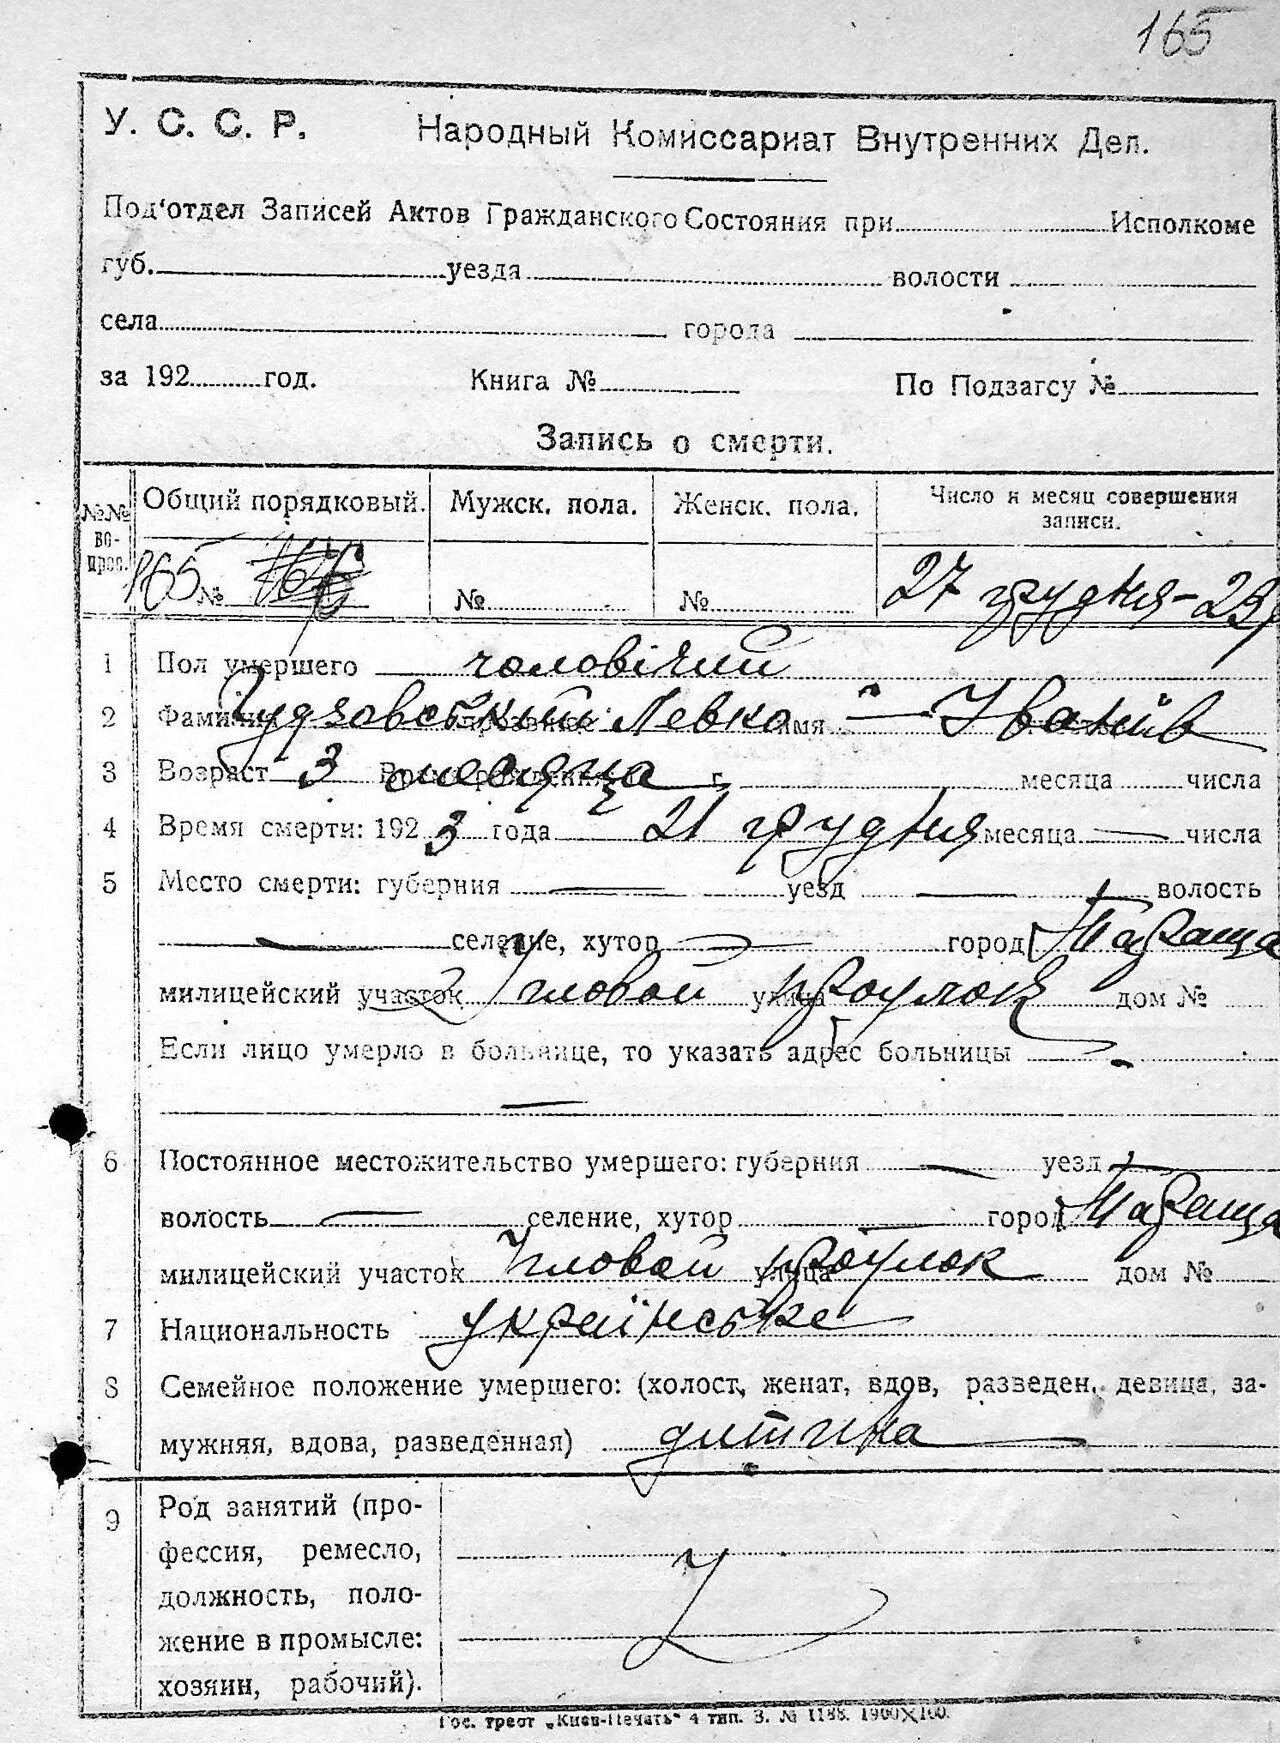 165
У. С. С. Р. Народный Комиссариат Внутренних Дел.
Под'отдел Записей Актов Гражданского Состояния при Исполкоме
губ. уезда волости
села города
за 192 год. Книга № По Подзагсу №
Запись о смерти.
№№ вопрос. Общий порядковый. Мужск. пола. Женск. пола. Число и месяц совершения записи.
165 № № № 27 грудня - 23
1 Пол умершего чоловічий
2 Фамилия прозвище Левко имя — Іванів
3 Возраст 3 месяца г. месяца числа
4 Время смерти: 1923 года 21 грудня месяца — числа
5 Место смерти: губерния — уезд — волость
— селение, хутор — город Тараща
милицейский участок улица дом №
Если лицо умерло в больнице, то указать адрес больницы —
—
6 Постоянное местожительство умершего: губерния — уезд —
волость — селение, хутор — город Тараща
милицейский участок улица дом №
7 Национальность українське
8 Семейное положение умершего: (холост, женат, вдов, разведен, девица, за-
мужняя, вдова, разведенная) дитина
9 Род занятий (про-
фессия, ремесло,
должность, поло-
жение в промысле:
хозяин, рабочий).
Гос. трест „Киев-Печать“ 4 тип. З. № 1188. 1900×100.